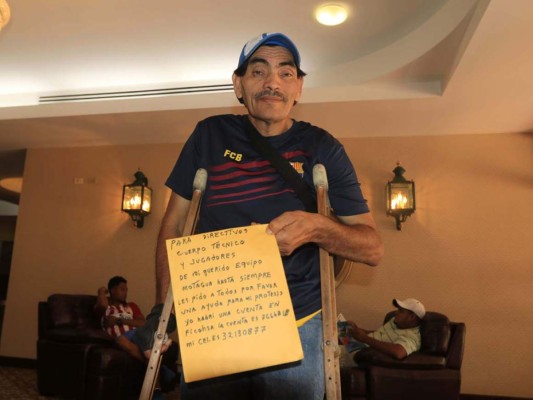 FCB
PARA DIRECTIVOS
CUERPO TÉCNICO
Y JUGADORES
DE MI QUERIDO EQUIPO
MOTAGUA HASTA SIEMPRE
LES PIDO A TODOS POR FAVOR
UNA AYUDA PARA MI PROTESIS
YO ABRI UNA CUENTA EN
FICOHSA LA CUENTA ES
MI CEL.ES 32130877